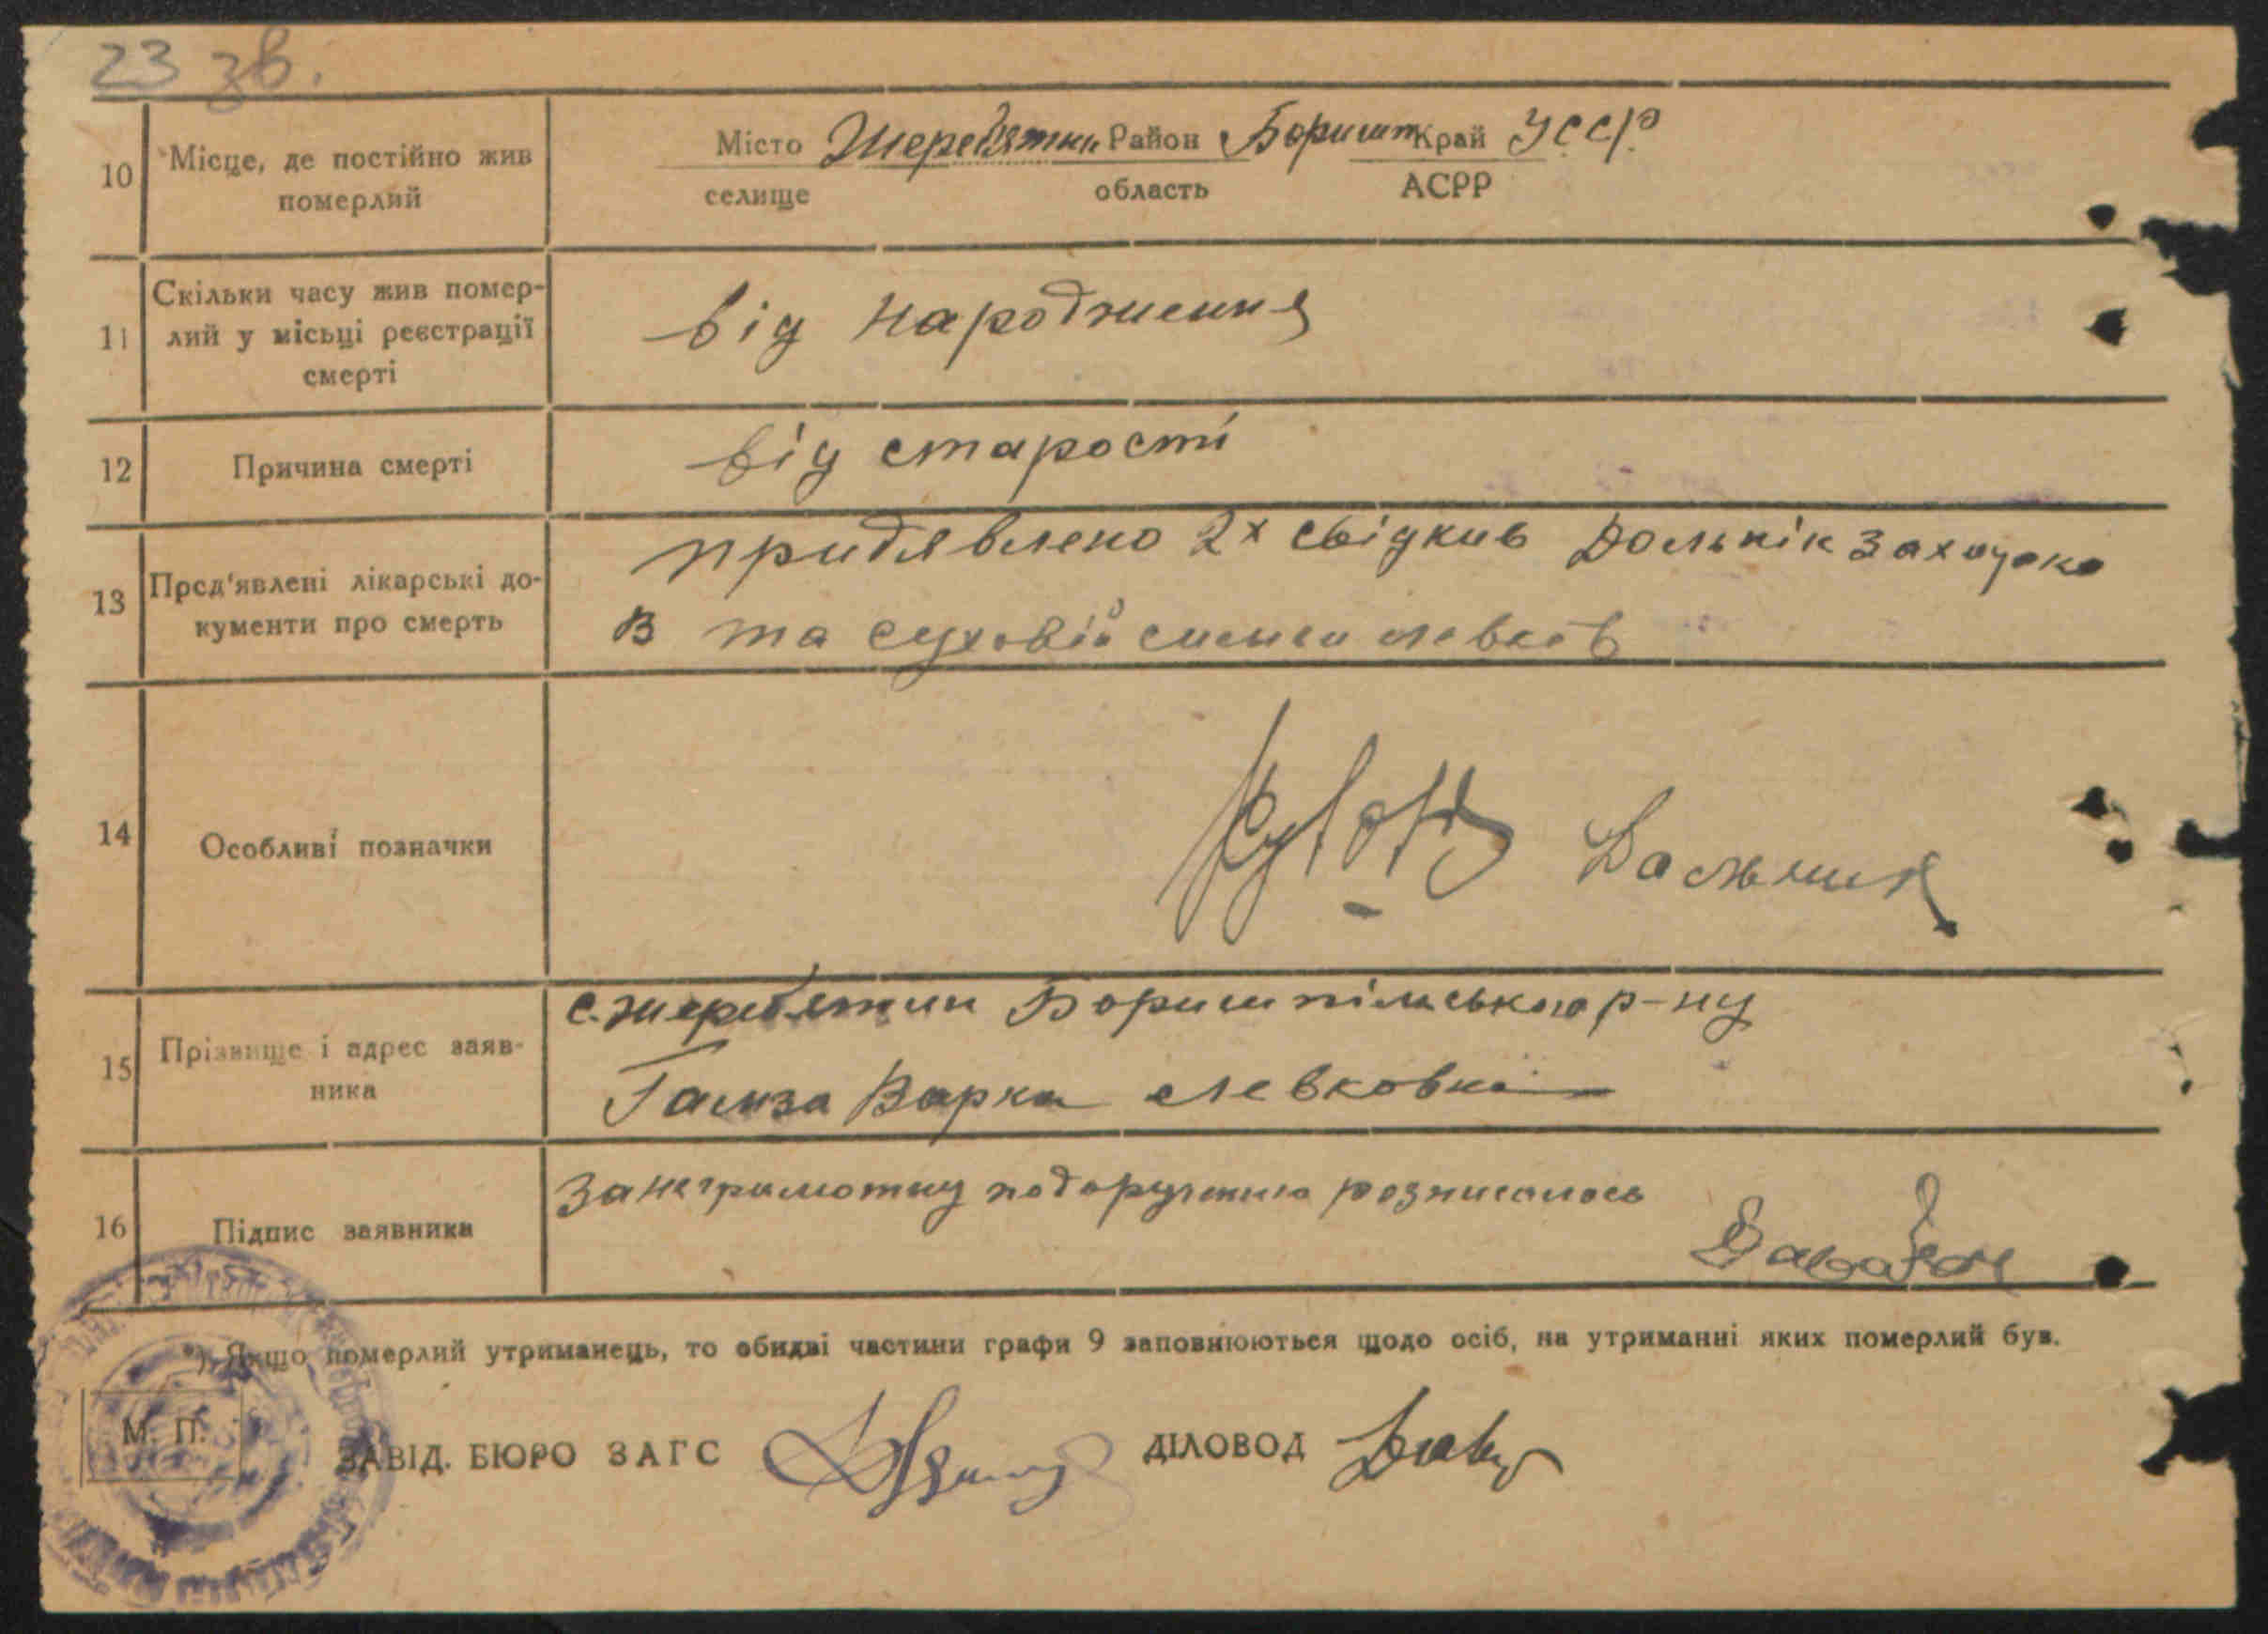 23 зв.
10 Місце, де постійно жив померлий
Місто Жеребятин Район Боришп Край УССР
селище область АСРР
11 Скільки часу жив помер-
лий у місьці реєстрації
смерті
від народження
12 Причина смерті
від старості
13 Пред'явлені лікарські до-
кументи про смерть
придявлено 2х свідкив Дольнік
В та суховій левков
14 Особливі позначки
Дальник
15 Прізвище і адрес заяв-
ника
с. жеребятин Боришпільського р-ну
Гамза Варка Левковна
16 Підпис заявника
за неграмотну росписалось
*) Якщо померлий утриманець, то обидві частини графи 9 заповнюються щодо осіб, на утриманні яких померлий був.
М. П.
ЗАВІД. БЮРО ЗАГС ДІЛОВОД